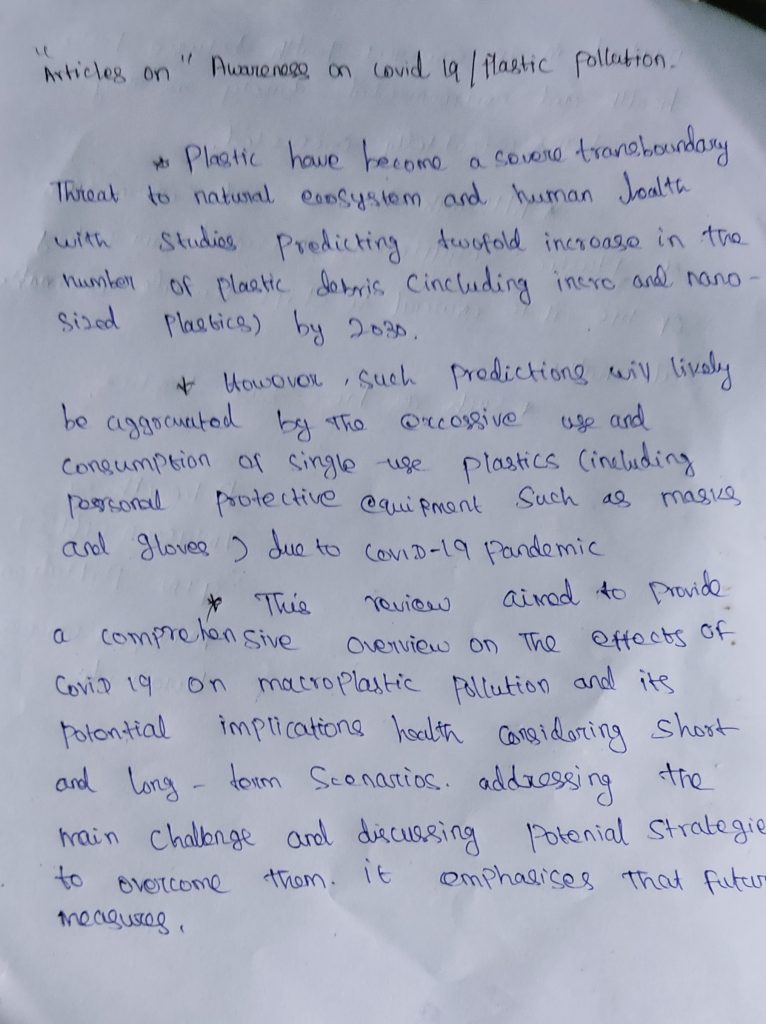 "Articles on" Awareness on covid 19 / Plastic pollution.
* Plastic have become a severe transboundary
Threat to natural ecosystem and human health
with studies predicting twofold increase in the
number of plastic debris (including incro and nano-
sized plastics) by 2030.
* However, such predictions will likely
be aggravated by the excessive use and
consumption of single-use plastics (including
personal protective equipment such as masks
and gloves) due to COVID-19 pandemic
* This review aimed to provide
a comprehensive overview on the effects of
Covid 19 on macroplastic pollution and its
potential implications health considering short
and long-term scenarios. addressing the
main challenge and discussing potenial strategie
to overcome them. it emphasises that futur
measures.